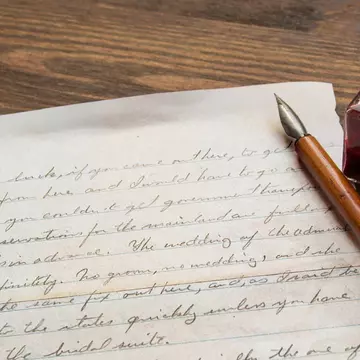 back, if you came out here, to get
from here and I would have to go
you couldn't get government transpor
servations for the mainland are full
is in advance. The wedding of the Admira
finitely. No groom, no wedding, and she
the same fix out here, and, as I said be
t the states quickly unless you have
the bridal suite.
the one of